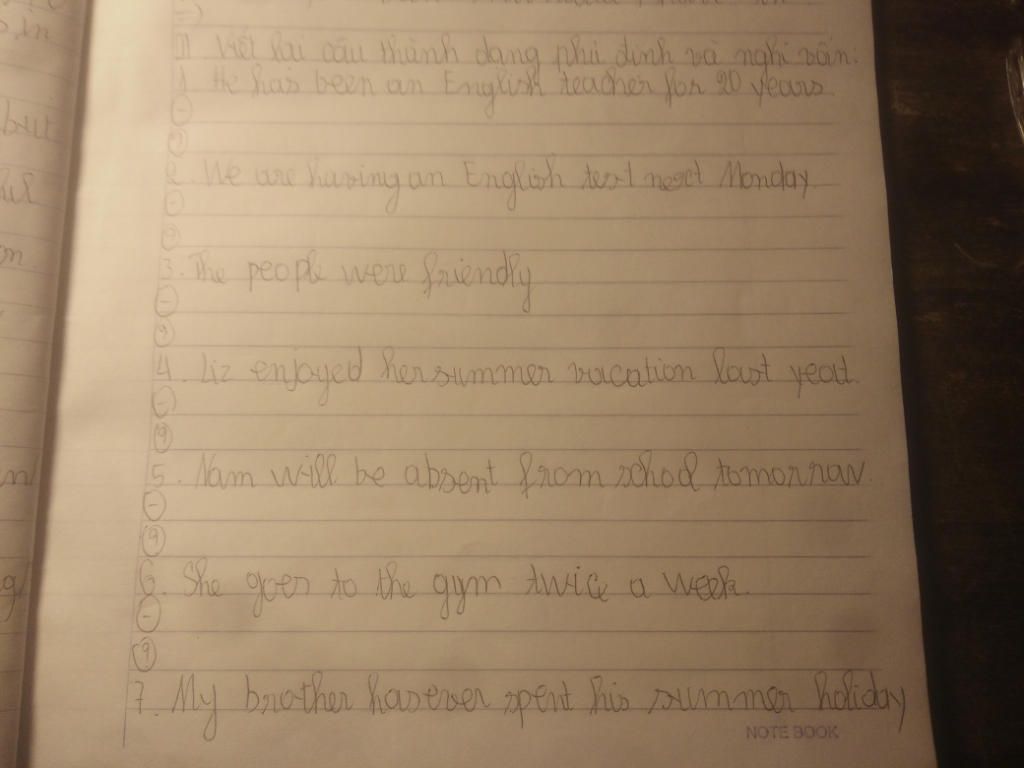 =)
III Viết lại câu thành dạng phủ định và nghi vấn:
1. He has been an English teacher for 20 years.
(-)
(?)
2. We are having an English test next Monday.
(-)
(?)
3. The people were friendly
(-)
(?)
4. Liz enjoyed her summer vacation last year.
(-)
(?)
5. Nam will be absent from school tomorrow.
(-)
(?)
6. She goes to the gym twice a week.
(-)
(?)
7. My brother has ever spent his summer holiday
NOTE BOOK